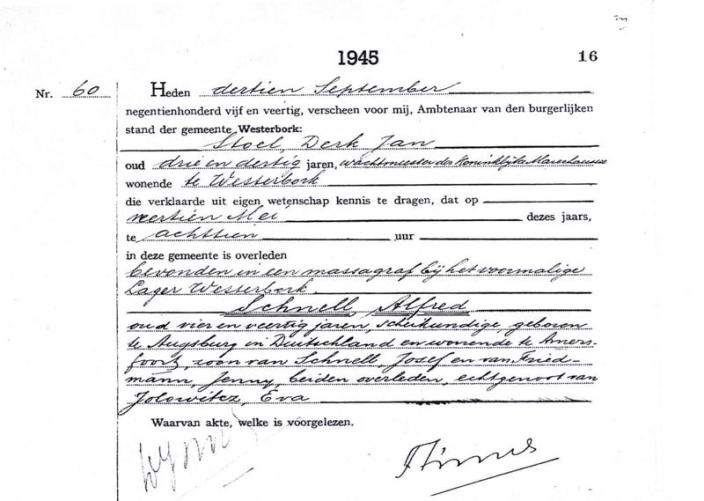 1945 16
Nr. 60 Heden dertien September
negentienhonderd vijf en veertig, verscheen voor mij, Ambtenaar van den burgerlijken
stand der gemeente Westerbork:
Stoel, Derk Jan
oud drie en dertig jaren, wachtmeester der Koninklijke Marechaussee
wonende te Westerbork
die verklaarde uit eigen wetenschap kennis te dragen, dat op
Mei dezes jaars,
te achttien uur
in deze gemeente is overleden
bevonden in een massagraf bij het voormalige
Lager Westerbork
Schnell, Alfred
oud vier en veertig jaren, scheikundige, geboren
te Augsburg in Duitschland en wonende te Amers-
foort, zoon van Schnell, Jozef en van Fried-
mann, Jenny, beiden overleden, echtgenoot van
Jolowitz, Eva
Waarvan akte, welke is voorgelezen.